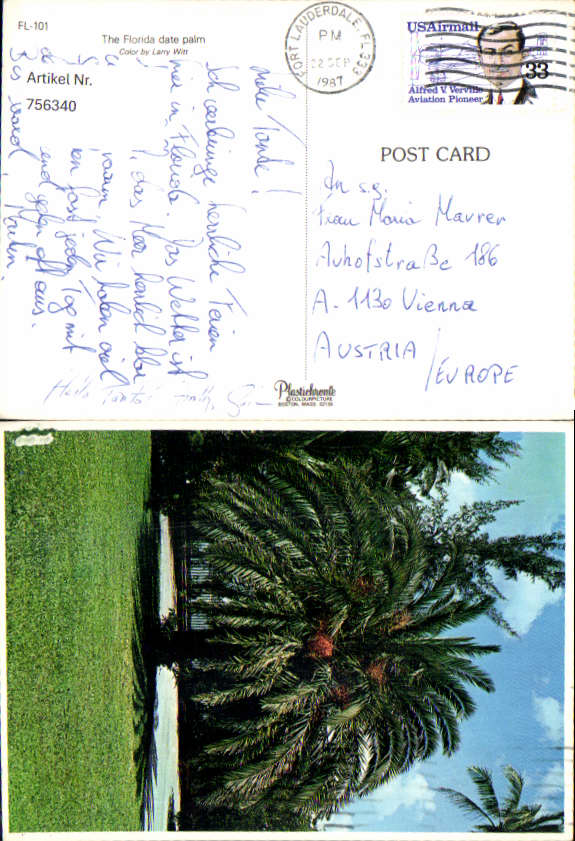 FL-101
The Florida date palm
Color by Larry Witt
Artikel Nr.
756340
FORT LAUDERDALE, FL 333
PM
22 SEP
1987
USAirmail
33
Alfred V. Verville
Aviation Pioneer
POST CARD
Liebe Tante!
Ich verbringe herrliche Ferien
hier in Florida. Das Wetter ist
das Meer herrlich blau
warm. Wir haben viel
fast jeden Tag mit
und gehen oft aus.
Hallo Tante!
An s.g.
Frau Maria Maurer
Auhofstraße 186
A-1130 Vienna
AUSTRIA
/EUROPE
Plastichrome
© COLOURPICTURE
BOSTON, MASS. 02130